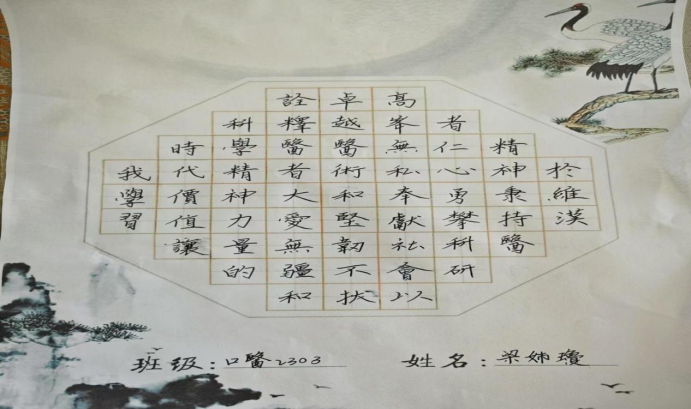 於維漢
精神秉持醫
者仁心勇攀科研
高峯無私奉獻社會以
卓越醫術和堅韌不拔
詮釋醫者大愛無疆和
科學精神力量的
時代價值讓
我學習
班级：口醫2303
姓名：梁姊瓊